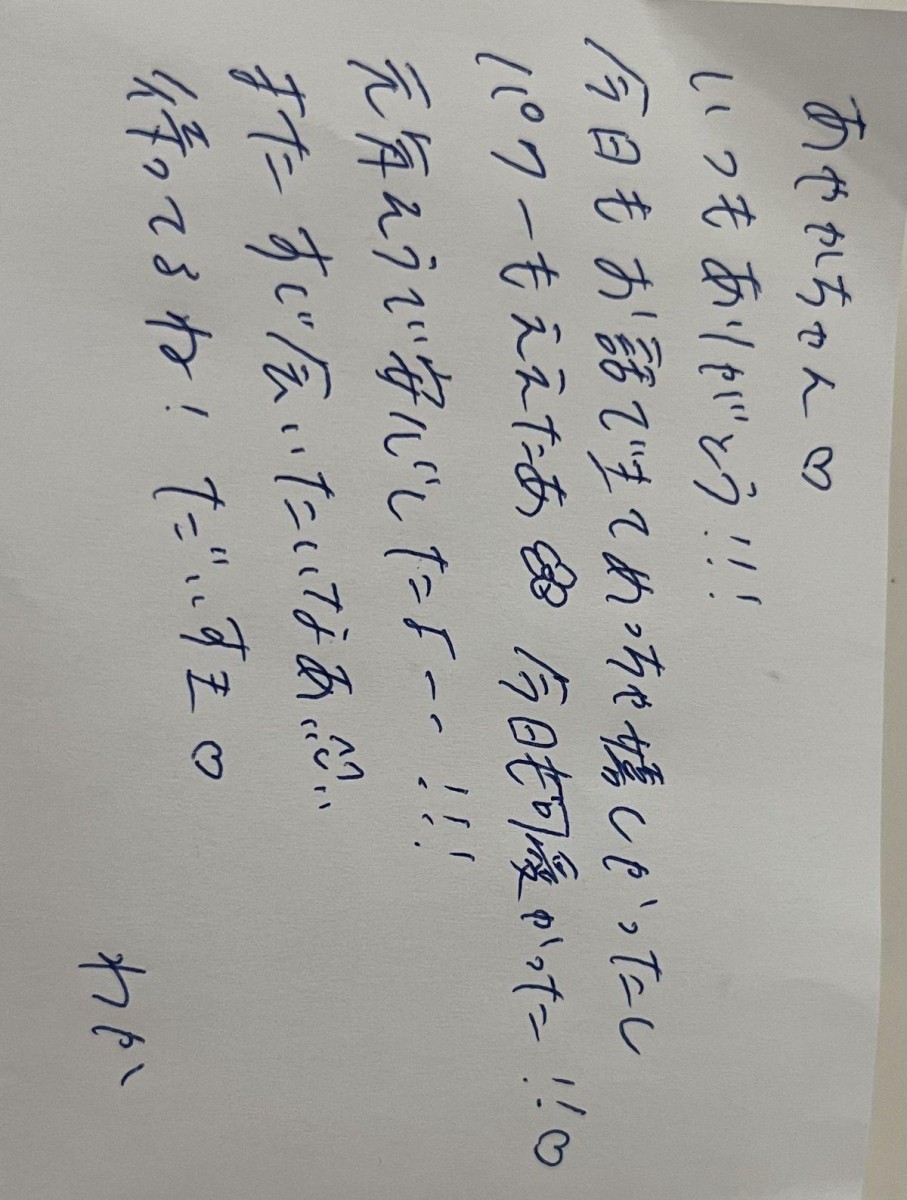 あやかちゃん♡
いつもありがとう!!!
今日もお話できてめっちゃ嬉しかったし
パワーもらえたあ 今日も可愛かった!!♡
元気そうで安心したよー!!!
またすぐ会いたいなあ
待ってるね! だいすき♡
わか